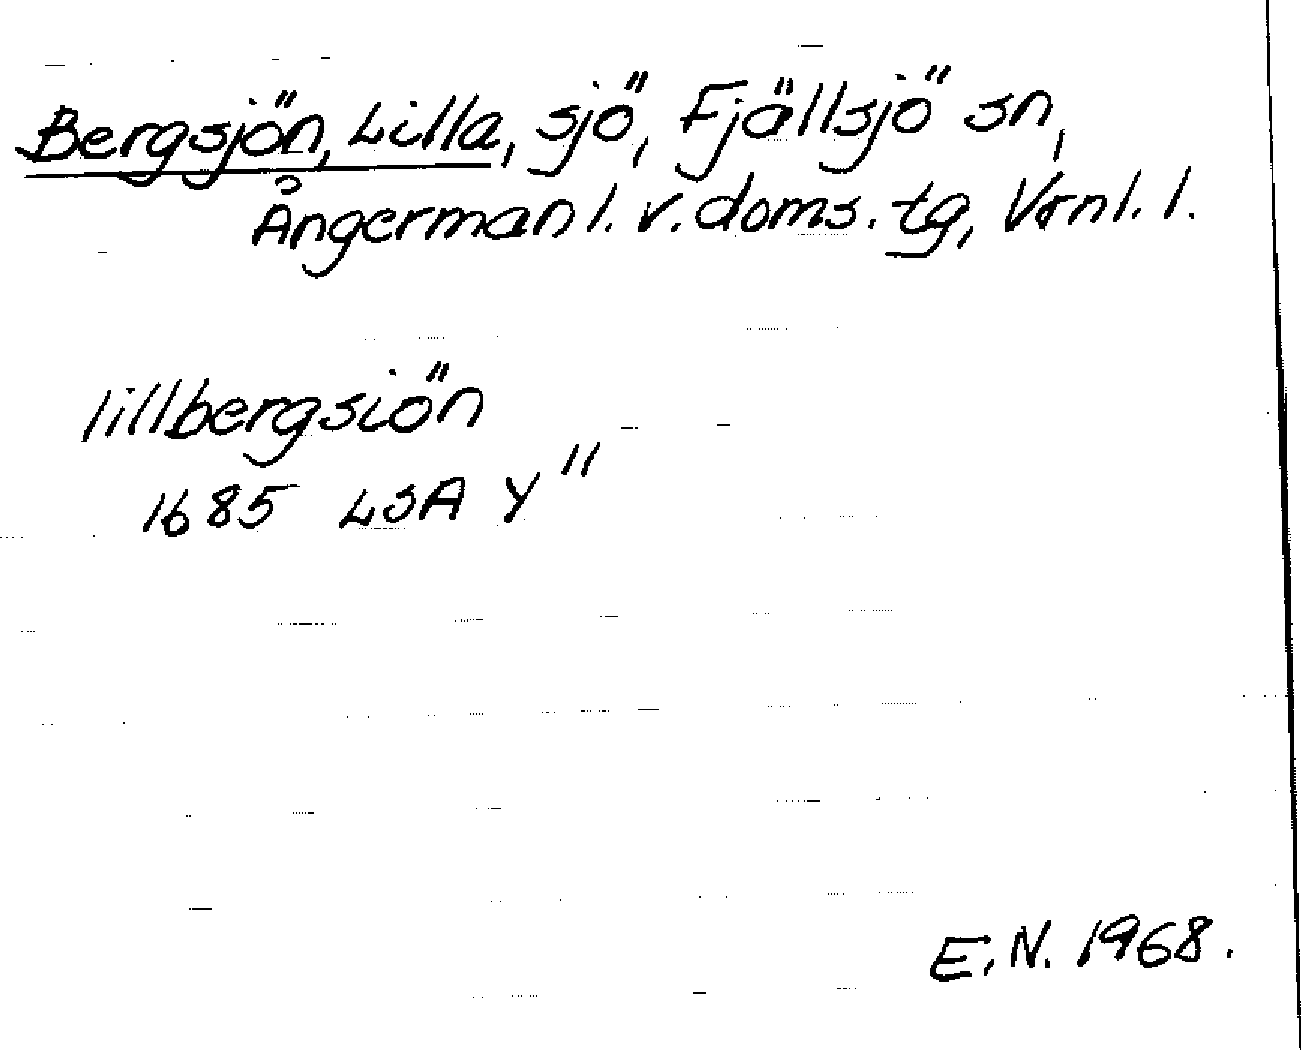 Bergsjön, Lilla, sjö, Fjällsjö sn,
Ångermanl. v. doms. tg, Vrnl. l.
lillbergsiön
1685 LSA Y"
E.N. 1968.